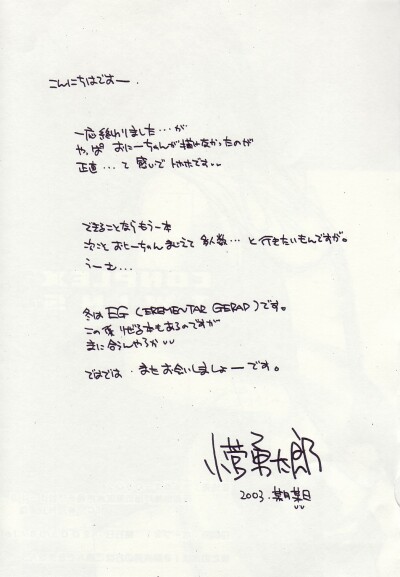 こんにちはですー.
一応終わりました…が
やっぱ おにーちゃんが描けなかったのが
正直…て感じで トホホです
できることなら もう一本
次こそ おにーちゃん まじえて 多人数… と行きたいもんですが。
うーむ…
冬は EG (EREMENTAR GERAD) です。
この後 りぜる本もあるのですが
まに合うんやろか
ではでは、またお会いしましょーです。
小菅勇太郎
2003.某月某日